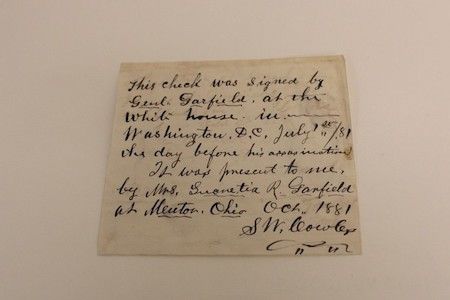 This check was signed by
Genl. Garfield, at the
White house in
Washington, D.C, July 1st/81
the day before his assasination
It was present to me,
by Mrs, Lucretia R. Garfield
at Mentor, Ohio Oct, 1881
S W, Cowles